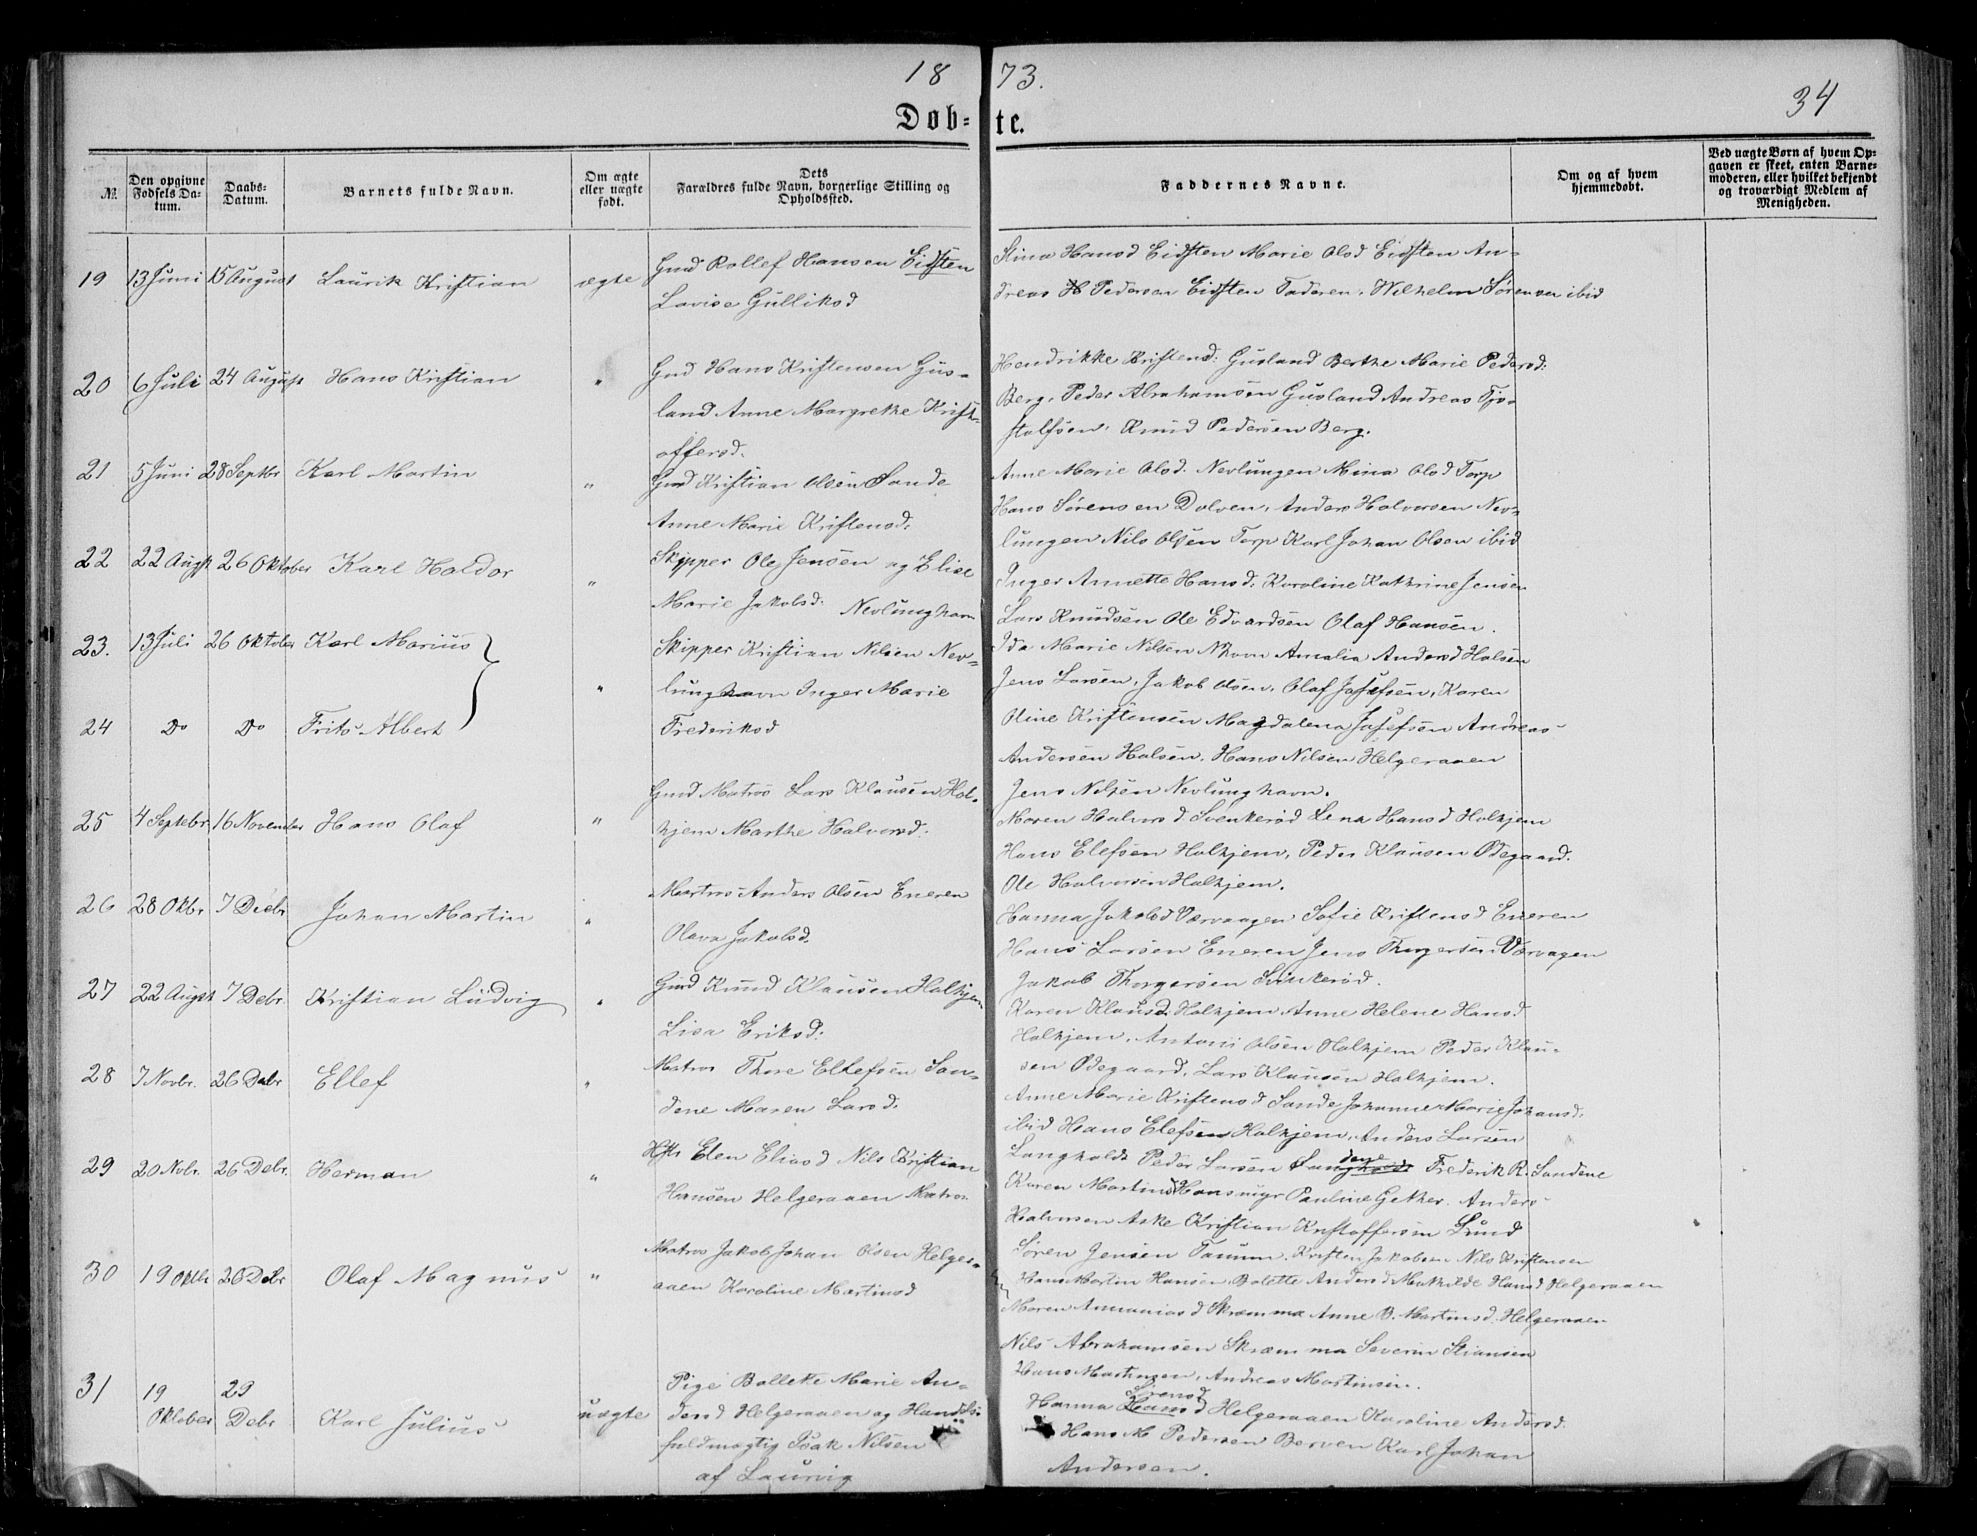 18 73.
34
Døb= te.
№
Den opgivne Fødsels Datum.
Daabs-Datum.
Barnets fulde Navn.
Om ægte eller uægte født.
Dets Forældres fulde Navn, borgerlige Stilling og Opholdssted.
Faddernes Navne.
Om og af hvem hjemmedøbt.
Ved uægte Børn af hvem Opgaven er skeet, enten Barnemoderen, eller hvilket bekjendt og troværdigt Medlem af Menigheden.
19 13 Juni 15 August Laurik Kristian ægte
Gmd Rollef Hansen Eidsten
Lovise Gulliksd
Stina Hansd Eidsten Marie Olsd Eidsten An-
dreas Pedersen Eidsten Faderen, Wilhelm Sørensen ibid
20 6 Juli 24 August Hans Kristian "
Gmd Hans Kristensen Gus-
land Anne Margrethe Krist-
offersd.
Hendrikke Kristensd: Gusland Berthe Marie Pedersd:
Berg, Peder Abrahamsen Gusland Andreas Tjo-
stolfsen, Knud Pedersen Berg.
21 5 Juni 28 Septbr Karl Martin "
Gmd Kristian Olsen Sande
Anne Marie Kristensd:
Anne Marie Olsd: Nevlungen Mina Olsd Torp
Hans Sørensen Dolven, Anders Halvorsen Nev-
lungen Nils Olsen Torp Karl Johan Olsen ibid
22 22 Augst 26 Oktober Karl Haldor "
Skipper Ole Jensen og Elise
Marie Jakobsd. Nevlunghavn
Inger Annette Hansd: Karoline Kathrine Jensen
Lars Knudsen Ole Edvardsen Olaf Hansen.
23. 13 Juli 26 Oktober Karl Marius "
Skipper Kristian Nilsen Nev-
lunghavn Inger Marie
Frederiksd
Ida Marie Nilsen Nhavn Amalia Andersd Halsen
Jens Larsen, Jakob Olsen, Olaf Josefsen, Karen
24 Do Do Frits Albert
Oline Kristensen Magdalena Josefsen Andreas
Andersen Halsen, Hans Nilsen Helgeraaen
Jens Nilsen Nevlunghavn.
25 4 Septebr 16 November Hans Olaf "
Gmd Matros Lars Klausen Hal-
kjem Marthe Halvorsd.
Maren Halvorsd Svenkerød Lena Hansd Halkjem
Hans Elefsen Halkjem, Peder Klausen Ødegaard.
Ole Halvorsen Halkjem.
26 28 Okbr. 7 Decbr Johan Martin "
Matros Anders Olsen Eneren
Olava Jakobsd.
Hanna Jakobsd Værvaagen Sofie Kristensd Eneren
Hans Larsen Eneren Jens Thorgersen Værvagen
Jakob Thorgersen Svinkerød.
27 22 Augst 7 Debr. Kristian Ludvig "
Gmd Knud Klausen Halkjem
Lisa Eriksd:
Karen Klausd: Halkjem Anne Helene Hansd
Halkjem, Antoni Olsen Halkjem Peder Klau-
sen Ødegaard, Lars Klausen Halkjem.
28 7 Novbr. 26 Debr Ellef "
Matros Thore Ellefsen San-
dene Maren Larsd.
Anne Marie Kristensd Sande Johanne Marie Johansd.
ibid Hans Elefsen Halkjem, Anders Larsen
Langholdt Peder Larsen Sandene Frederik R. Sandene
29 20 Nobr. 26 Debr. Herman "
Hfr Elen Eliasd Nils Kristian
Hansen Helgeraaen Matros
Karen Martinsd Hansmyr Pauline Gether. Anders
Halvorsen Aske Kristian Kristoffersen Lund
Søren Jensen Tanum. Kristen Jakobsen Nils Kristensen
30 19 Oktb 26 Debr Olaf Magnus "
Matros Jakob Johan Olsen Helger-
aaen Karoline Martinsd
Hans Martin Hansen, Bolette Andersd Mathilde Hansd Helgeraaen
Maren Ammaniasd Skræmma Anne B. Martinsd. Helgeraaen
Nils Abrahamsen Skræmma Severin Stiansen
Hans Martinsen, Andreas Martinsen.
31 19 Oktober 29 Debr Karl Julius uægte
Pige Bolleke Marie An-
dersd Helgeraaen og Handels-
fuldmægtig Isak Nilsen
af Laurvig
Hanna Helgeraaen Karoline Andersd.
Hans M Pedersen Berven Karl Johan
Andersen.